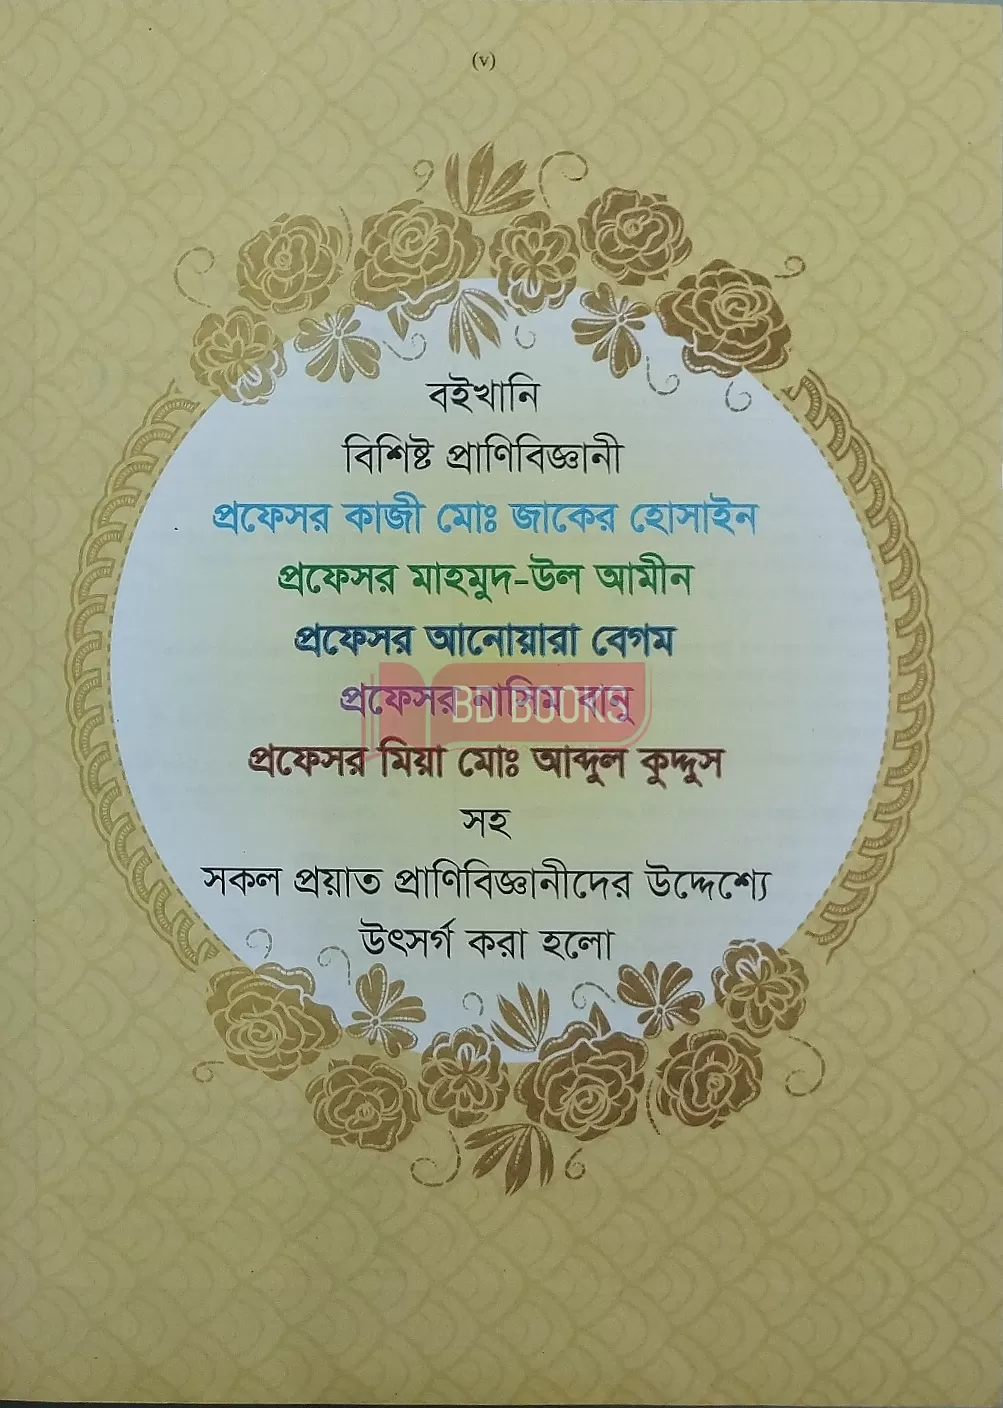 (v)
বইখানি
বিশিষ্ট প্রাণিবিজ্ঞানী
প্রফেসর কাজী মোঃ জাকের হোসাইন
প্রফেসর মাহমুদ-উল আমীন
প্রফেসর আনোয়ারা বেগম
প্রফেসর নাসিম বানু
BD BOOKS
প্রফেসর মিয়া মোঃ আব্দুল কুদ্দুস
সহ
সকল প্রয়াত প্রাণিবিজ্ঞানীদের উদ্দেশ্যে
উৎসর্গ করা হলো